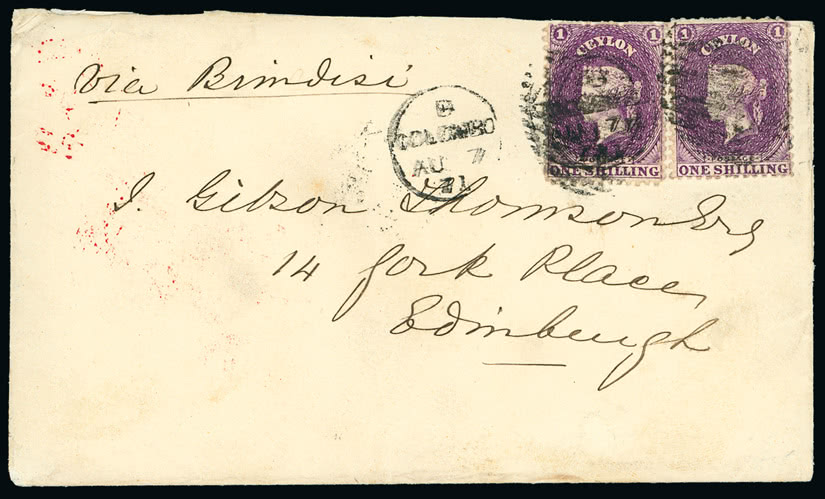 1 CEYLON 1
POSTAGE
ONE SHILLING
1 CEYLON 1
POSTAGE
ONE SHILLING
via Brindisi
B
COLOMBO
AU 7
71
J. Gibson Thomson Esq
14 York Place,
Edinburgh